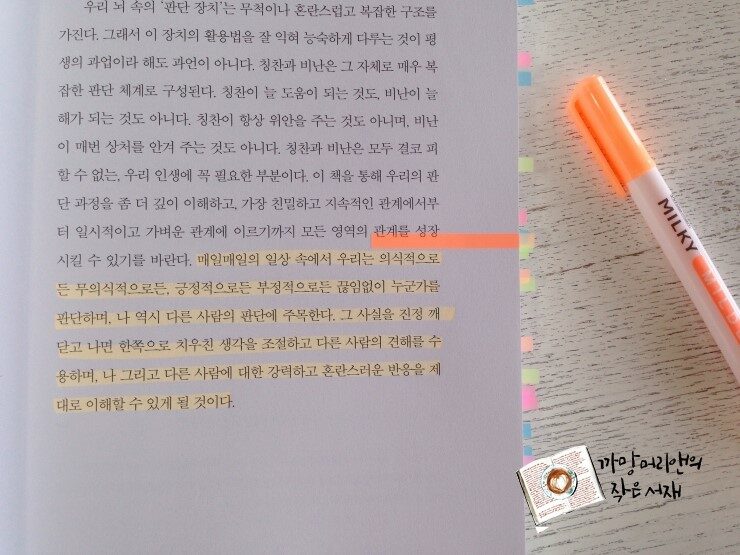 우리 뇌 속의 '판단 장치'는 무척이나 혼란스럽고 복잡한 구조를
가진다. 그래서 이 장치의 활용법을 잘 익혀 능숙하게 다루는 것이 평
생의 과업이라 해도 과언이 아니다. 칭찬과 비난은 그 자체로 매우 복
잡한 판단 체계로 구성된다. 칭찬이 늘 도움이 되는 것도, 비난이 늘
해가 되는 것도 아니다. 칭찬이 항상 위안을 주는 것도 아니며, 비난
이 매번 상처를 안겨 주는 것도 아니다. 칭찬과 비난은 모두 결코 피
할 수 없는, 우리 인생에 꼭 필요한 부분이다. 이 책을 통해 우리의 판
단 과정을 좀 더 깊이 이해하고, 가장 친밀하고 지속적인 관계에서부
터 일시적이고 가벼운 관계에 이르기까지 모든 영역의 관계를 성장
시킬 수 있기를 바란다. 매일매일의 일상 속에서 우리는 의식적으로
든 무의식적으로든, 긍정적으로든 부정적으로든 끊임없이 누군가를
판단하며, 나 역시 다른 사람의 판단에 주목한다. 그 사실을 진정 깨
닫고 나면 한쪽으로 치우친 생각을 조절하고 다른 사람의 견해를 수
용하며, 나 그리고 다른 사람에 대한 강력하고 혼란스러운 반응을 제
대로 이해할 수 있게 될 것이다.
MILKY
까망머리앤의
작은서재